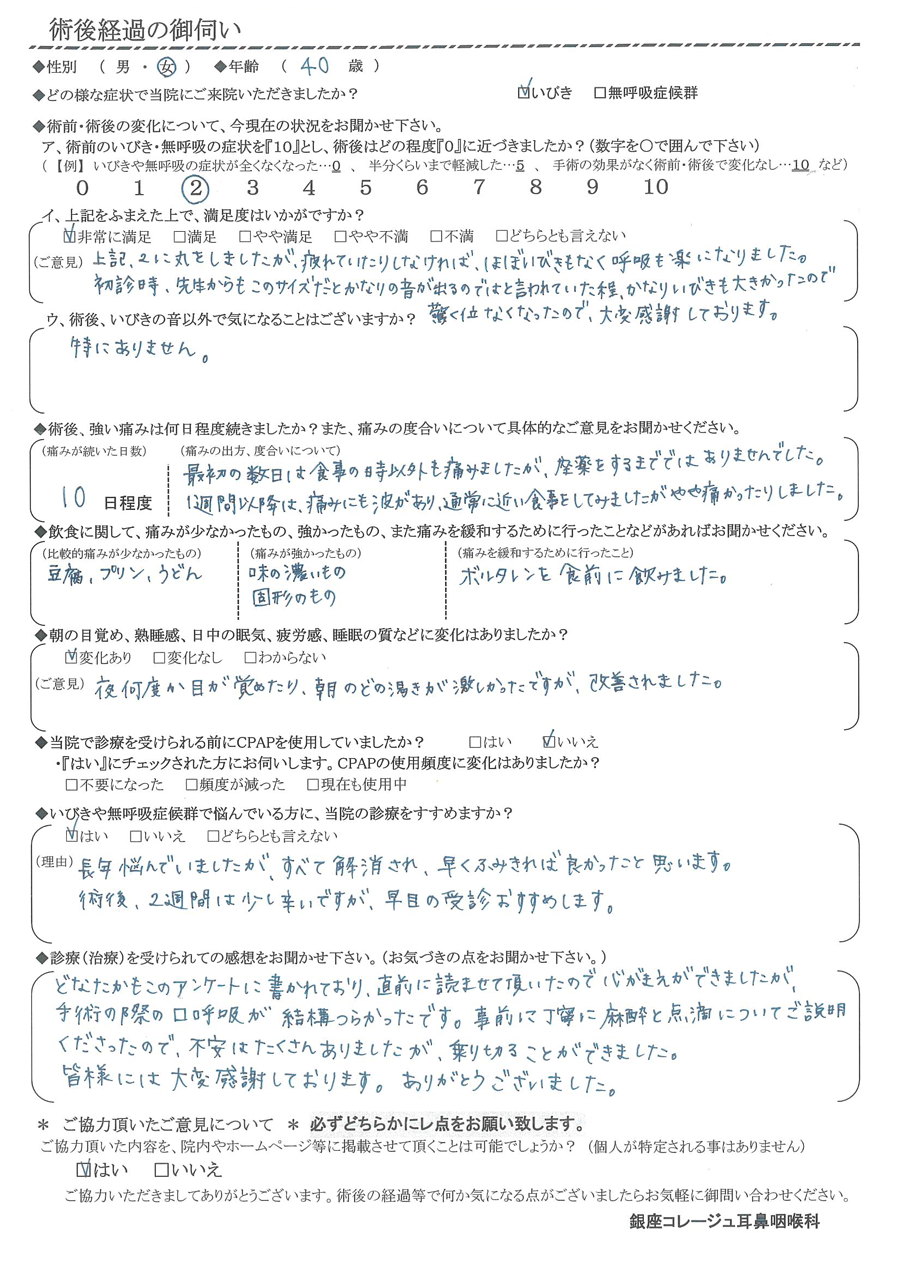 術後経過の御伺い
◆性別 （ 男 ・ 女 ） ◆年齢 （ 40 歳 ）
◆どの様な症状で当院にご来院いただきましたか？ ☑いびき □無呼吸症候群
◆術前・術後の変化について、今現在の状況をお聞かせ下さい。
ア、術前のいびき・無呼吸の症状を『10』とし、術後はどの程度『0』に近づきましたか？（数字を○で囲んで下さい）
（【例】 いびきや無呼吸の症状が全くなくなった…0 、 半分くらいまで軽減した…5 、 手術の効果がなく術前・術後で変化なし…10 など）
0 1 2 3 4 5 6 7 8 9 10
イ、上記をふまえた上で、満足度はいかがですか？
☑非常に満足 □満足 □やや満足 □やや不満 □不満 □どちらとも言えない
（ご意見） 上記、2に丸をしましたが、疲れていたりしなければ、ほぼいびきもなく呼吸も楽になりました。
初診時、先生からもこのサイズだとかなりの音が出るのではと言われていた程、かなりいびきも大きかったので
驚く位なくなったので、大変感謝しております。
ウ、術後、いびきの音以外で気になることはございますか？
特にありません。
◆術後、強い痛みは何日程度続きましたか？また、痛みの度合いについて具体的なご意見をお聞かせください。
（痛みが続いた日数） （痛みの出方、度合いについて）
最初の数日は食事の時以外も痛みましたが、座薬をするまでではありませんでした。
10 日程度 1週間以降は、痛みにも波があり、通常に近い食事をしてみましたがやや痛かったりしました。
◆飲食に関して、痛みが少なかったもの、強かったもの、また痛みを緩和するために行ったことなどがあればお聞かせください。
（比較的痛みが少なかったもの） （痛みが強かったもの） （痛みを緩和するために行ったこと）
豆腐、プリン、うどん 味の濃いもの ボルタレンを食前に飲みました。
固形のもの
◆朝の目覚め、熟睡感、日中の眠気、疲労感、睡眠の質などに変化はありましたか？
☑変化あり □変化なし □わからない
（ご意見） 夜何度か目が覚めたり、朝のどの渇きが激しかったですが、改善されました。
◆当院で診療を受けられる前にCPAPを使用していましたか？ □はい ☑いいえ
・『はい』にチェックされた方にお伺いします。CPAPの使用頻度に変化はありましたか？
□不要になった □頻度が減った □現在も使用中
◆いびきや無呼吸症候群で悩んでいる方に、当院の診療をすすめますか？
☑はい □いいえ □どちらとも言えない
（理由） 長年悩んでいましたが、すべて解消され、早くふみきれば良かったと思います。
術後、2週間は少し辛いですが、早目の受診おすすめします。
◆診療（治療）を受けられての感想をお聞かせ下さい。（お気づきの点をお聞かせ下さい。）
どなたかもこのアンケートに書かれており、直前に読ませて頂いたので心がまえができましたが、
手術の際の口呼吸が結構つらかったです。事前に丁寧に麻酔と点滴についてご説明
くださったので、不安はたくさんありましたが、乗り切ることができました。
皆様には大変感謝しております。ありがとうございました。
＊ ご協力頂いたご意見について ＊ 必ずどちらかにレ点をお願い致します。
ご協力頂いた内容を、院内やホームページ等に掲載させて頂くことは可能でしょうか？ （個人が特定される事はありません）
☑はい □いいえ
ご協力いただきましてありがとうございます。術後の経過等で何か気になる点がございましたらお気軽に御問い合わせください。
銀座コレージュ耳鼻咽喉科